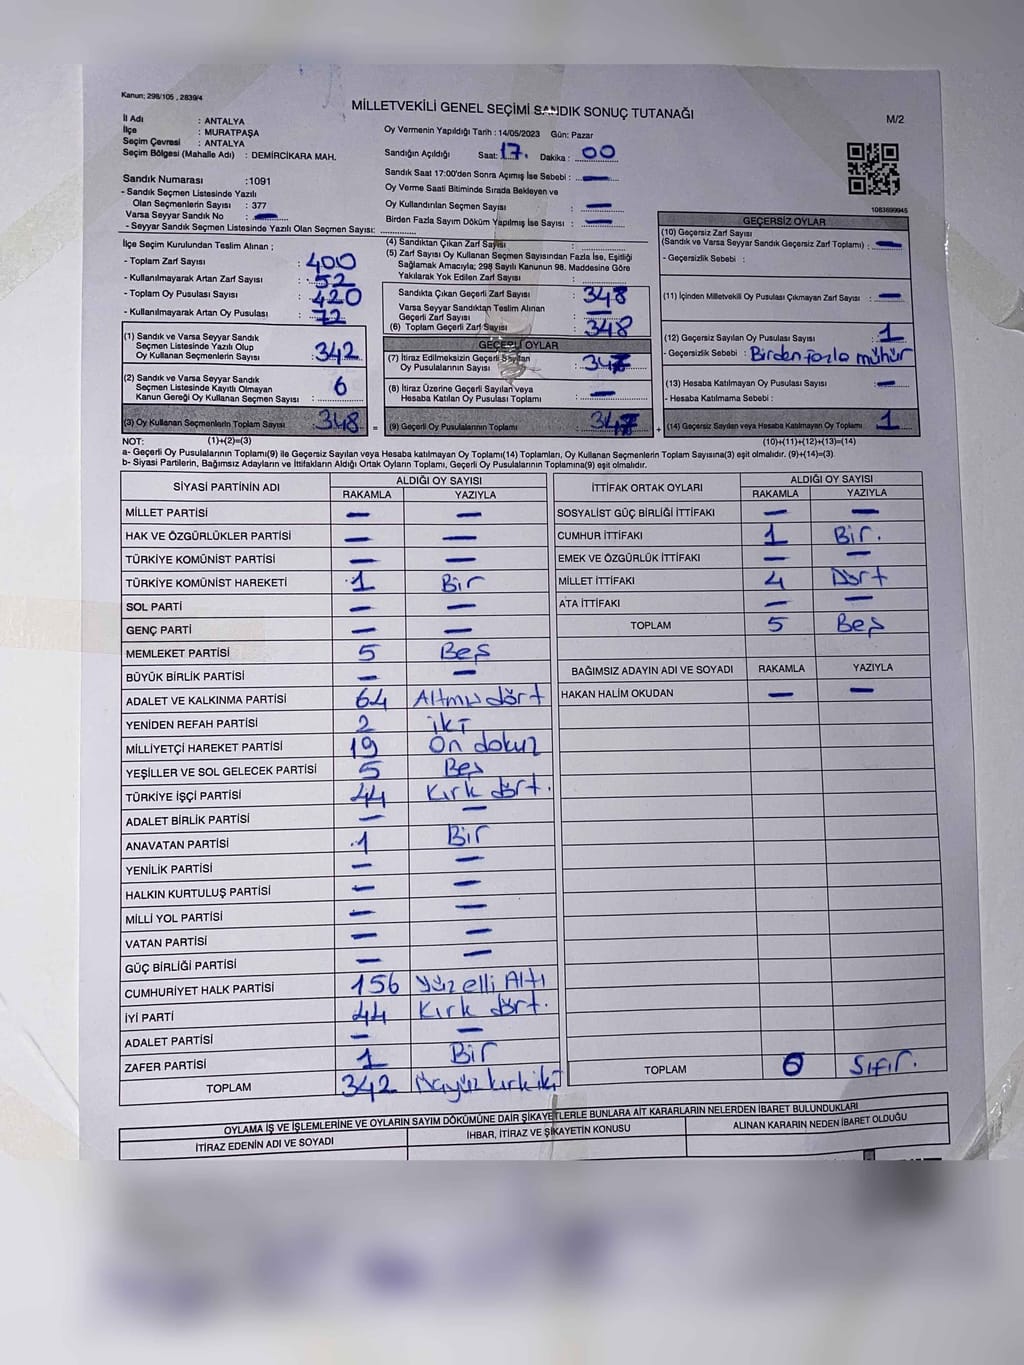 Kanun: 298/105 , 2839/4
MİLLETVEKİLİ GENEL SEÇİMİ SANDIK SONUÇ TUTANAĞI
M/2
İl Adı : ANTALYA
İlçe : MURATPAŞA
Seçim Çevresi : ANTALYA
Seçim Bölgesi (Mahalle Adı) : DEMİRCİKARA MAH.
Sandık Numarası :1091
- Sandık Seçmen Listesinde Yazılı
Olan Seçmenlerin Sayısı : 377
Varsa Seyyar Sandık No : —
- Seyyar Sandık Seçmen Listesinde Yazılı Olan Seçmen Sayısı:
Oy Vermenin Yapıldığı Tarih : 14/05/2023 Gün: Pazar
Sandığın Açıldığı Saat: 17. Dakika : 00
Sandık Saat 17:00'den Sonra Açımış İse Sebebi : —
Oy Verme Saati Bitiminde Sırada Bekleyen ve
Oy Kullandırılan Seçmen Sayısı : —
Birden Fazla Sayım Döküm Yapılmış İse Sayısı : —
1083699945
İlçe Seçim Kurulundan Teslim Alınan ;
- Toplam Zarf Sayısı : 400
- Kullanılmayarak Artan Zarf Sayısı : 52
- Toplam Oy Pusulası Sayısı : 420
- Kullanılmayarak Artan Oy Pusulası : 72
(1) Sandık ve Varsa Seyyar Sandık
Seçmen Listesinde Yazılı Olup
Oy Kullanan Seçmenlerin Sayısı : 342
(2) Sandık ve Varsa Seyyar Sandık
Seçmen Listesinde Kayıtlı Olmayan
Kanun Gereği Oy Kullanan Seçmen Sayısı : 6
(3) Oy Kullanan Seçmenlerin Toplam Sayısı : 348 =
(4) Sandıktan Çıkan Zarf Sayısı :
(5) Zarf Sayısı Oy Kullanan Seçmen Sayısından Fazla İse, Eşitliği
Sağlamak Amacıyla; 298 Sayılı Kanunun 98. Maddesine Göre
Yakılarak Yok Edilen Zarf Sayısı :
Sandıkta Çıkan Geçerli Zarf Sayısı : 348
Varsa Seyyar Sandıktan Teslim Alınan
Geçerli Zarf Sayısı : —
(6) Toplam Geçerli Zarf Sayısı : 348
GEÇERLİ OYLAR
(7) İtiraz Edilmeksizin Geçerli Sayılan
Oy Pusulalarının Sayısı : 347
(8) İtiraz Üzerine Geçerli Sayılan veya
Hesaba Katılan Oy Pusulası Toplamı : —
(9) Geçerli Oy Pusulalarının Toplamı : 347 +
GEÇERSİZ OYLAR
(10) Geçersiz Zarf Sayısı
(Sandık ve Varsa Seyyar Sandık Geçersiz Zarf Toplamı) : —
- Geçersizlik Sebebi :
(11) İçinden Milletvekili Oy Pusulası Çıkmayan Zarf Sayısı : —
(12) Geçersiz Sayılan Oy Pusulası Sayısı : 1
- Geçersizlik Sebebi : Birden fazla mühür
(13) Hesaba Katılmayan Oy Pusulası Sayısı : —
- Hesaba Katılmama Sebebi :
(14) Geçersiz Sayılan veya Hesaba Katılmayan Oy Toplamı : 1
NOT: (1)+(2)=(3) (10)+(11)+(12)+(13)=(14)
a- Geçerli Oy Pusulalarının Toplamı(9) ile Geçersiz Sayılan veya Hesaba Katılmayan Oy Toplamı(14) Toplamları, Oy Kullanan Seçmenlerin Toplam Sayısına(3) eşit olmalıdır. (9)+(14)=(3).
b- Siyasi Partilerin, Bağımsız Adayların ve İttifakların Aldığı Ortak Oyların Toplamı, Geçerli Oy Pusulalarının Toplamına(9) eşit olmalıdır.
SİYASİ PARTİNİN ADI ALDIĞI OY SAYISI
RAKAMLA YAZIYLA
MİLLET PARTİSİ — —
HAK VE ÖZGÜRLÜKLER PARTİSİ — —
TÜRKİYE KOMÜNİST PARTİSİ — —
TÜRKİYE KOMÜNİST HAREKETİ 1 Bir
SOL PARTİ — —
GENÇ PARTİ — —
MEMLEKET PARTİSİ 5 Beş
BÜYÜK BİRLİK PARTİSİ — —
ADALET VE KALKINMA PARTİSİ 64 Altmış dört
YENİDEN REFAH PARTİSİ 2 iki
MİLLİYETÇİ HAREKET PARTİSİ 19 On dokuz
YEŞİLLER VE SOL GELECEK PARTİSİ 5 Beş
TÜRKİYE İŞÇİ PARTİSİ 44 Kırk dört.
ADALET BİRLİK PARTİSİ — —
ANAVATAN PARTİSİ 1 Bir
YENİLİK PARTİSİ — —
HALKIN KURTULUŞ PARTİSİ — —
MİLLİ YOL PARTİSİ — —
VATAN PARTİSİ — —
GÜÇ BİRLİĞİ PARTİSİ — —
CUMHURİYET HALK PARTİSİ 156 Yüz elli Altı
İYİ PARTİ 44 Kırk dört.
ADALET PARTİSİ — —
ZAFER PARTİSİ 1 Bir
TOPLAM 342 Üçyüz kırk iki
İTTİFAK ORTAK OYLARI ALDIĞI OY SAYISI
RAKAMLA YAZIYLA
SOSYALİST GÜÇ BİRLİĞİ İTTİFAKI — —
CUMHUR İTTİFAKI 1 Bir.
EMEK VE ÖZGÜRLÜK İTTİFAKI — —
MİLLET İTTİFAKI 4 Dört
ATA İTTİFAKI — —
TOPLAM 5 Beş
BAĞIMSIZ ADAYIN ADI VE SOYADI RAKAMLA YAZIYLA
HAKAN HALİM OKUDAN — —
TOPLAM 0 Sıfır.
OYLAMA İŞ VE İŞLEMLERİNE VE OYLARIN SAYIM DÖKÜMÜNE DAİR ŞİKAYETLERLE BUNLARA AİT KARARLARIN NELERDEN İBARET BULUNDUKLARI
İTİRAZ EDENİN ADI VE SOYADI İHBAR, İTİRAZ VE ŞİKAYETİN KONUSU ALINAN KARARIN NEDEN İBARET OLDUĞU